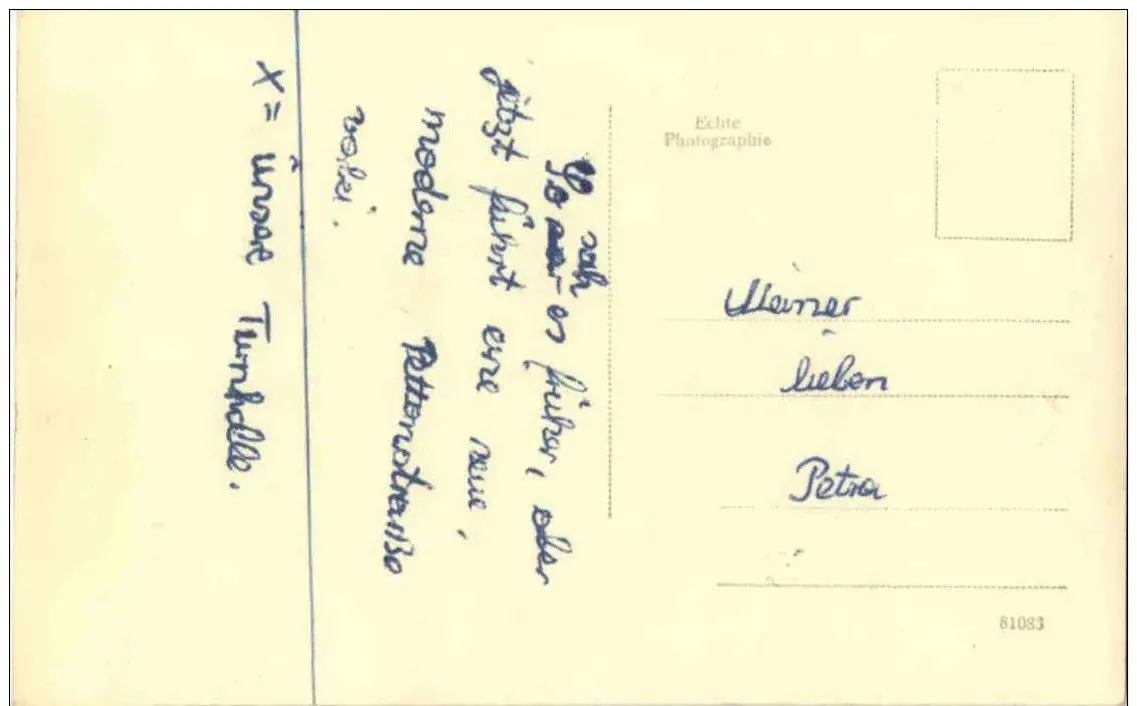 Echte
Photographie
So sah es früher, aber
jetzt führt eine neue,
moderne Bettonstraße
vorbei.
X = unsre Turnhalle.
Meiner
lieben
Petra
81083